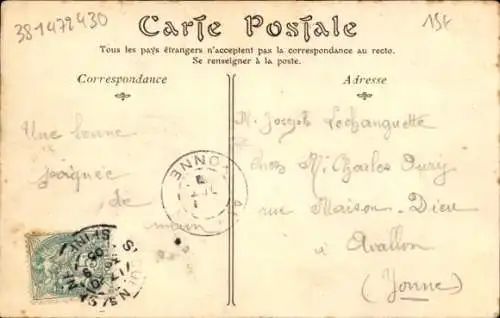 381472430
15f
Carte Postale
Tous les pays étrangers n'acceptent pas la correspondance au recto.
Se renseigner à la poste.
Correspondance
Adresse
Une bonne
poignée
de
main
M. Joseph Lechanguette
chez M. Charles Oury
rue Maison-Dieu
à Avallon
(Yonne)
YONNE